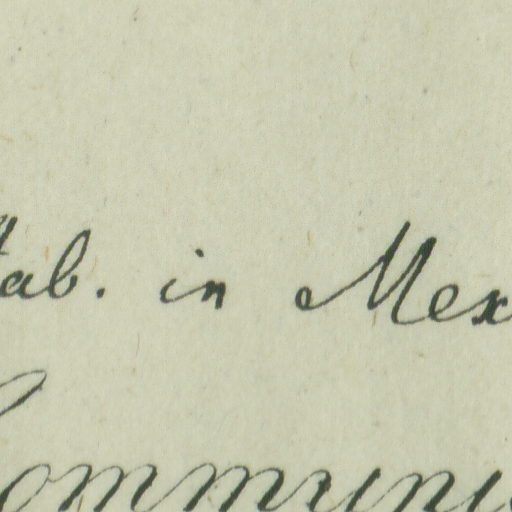 Hab. in Mex
Communi